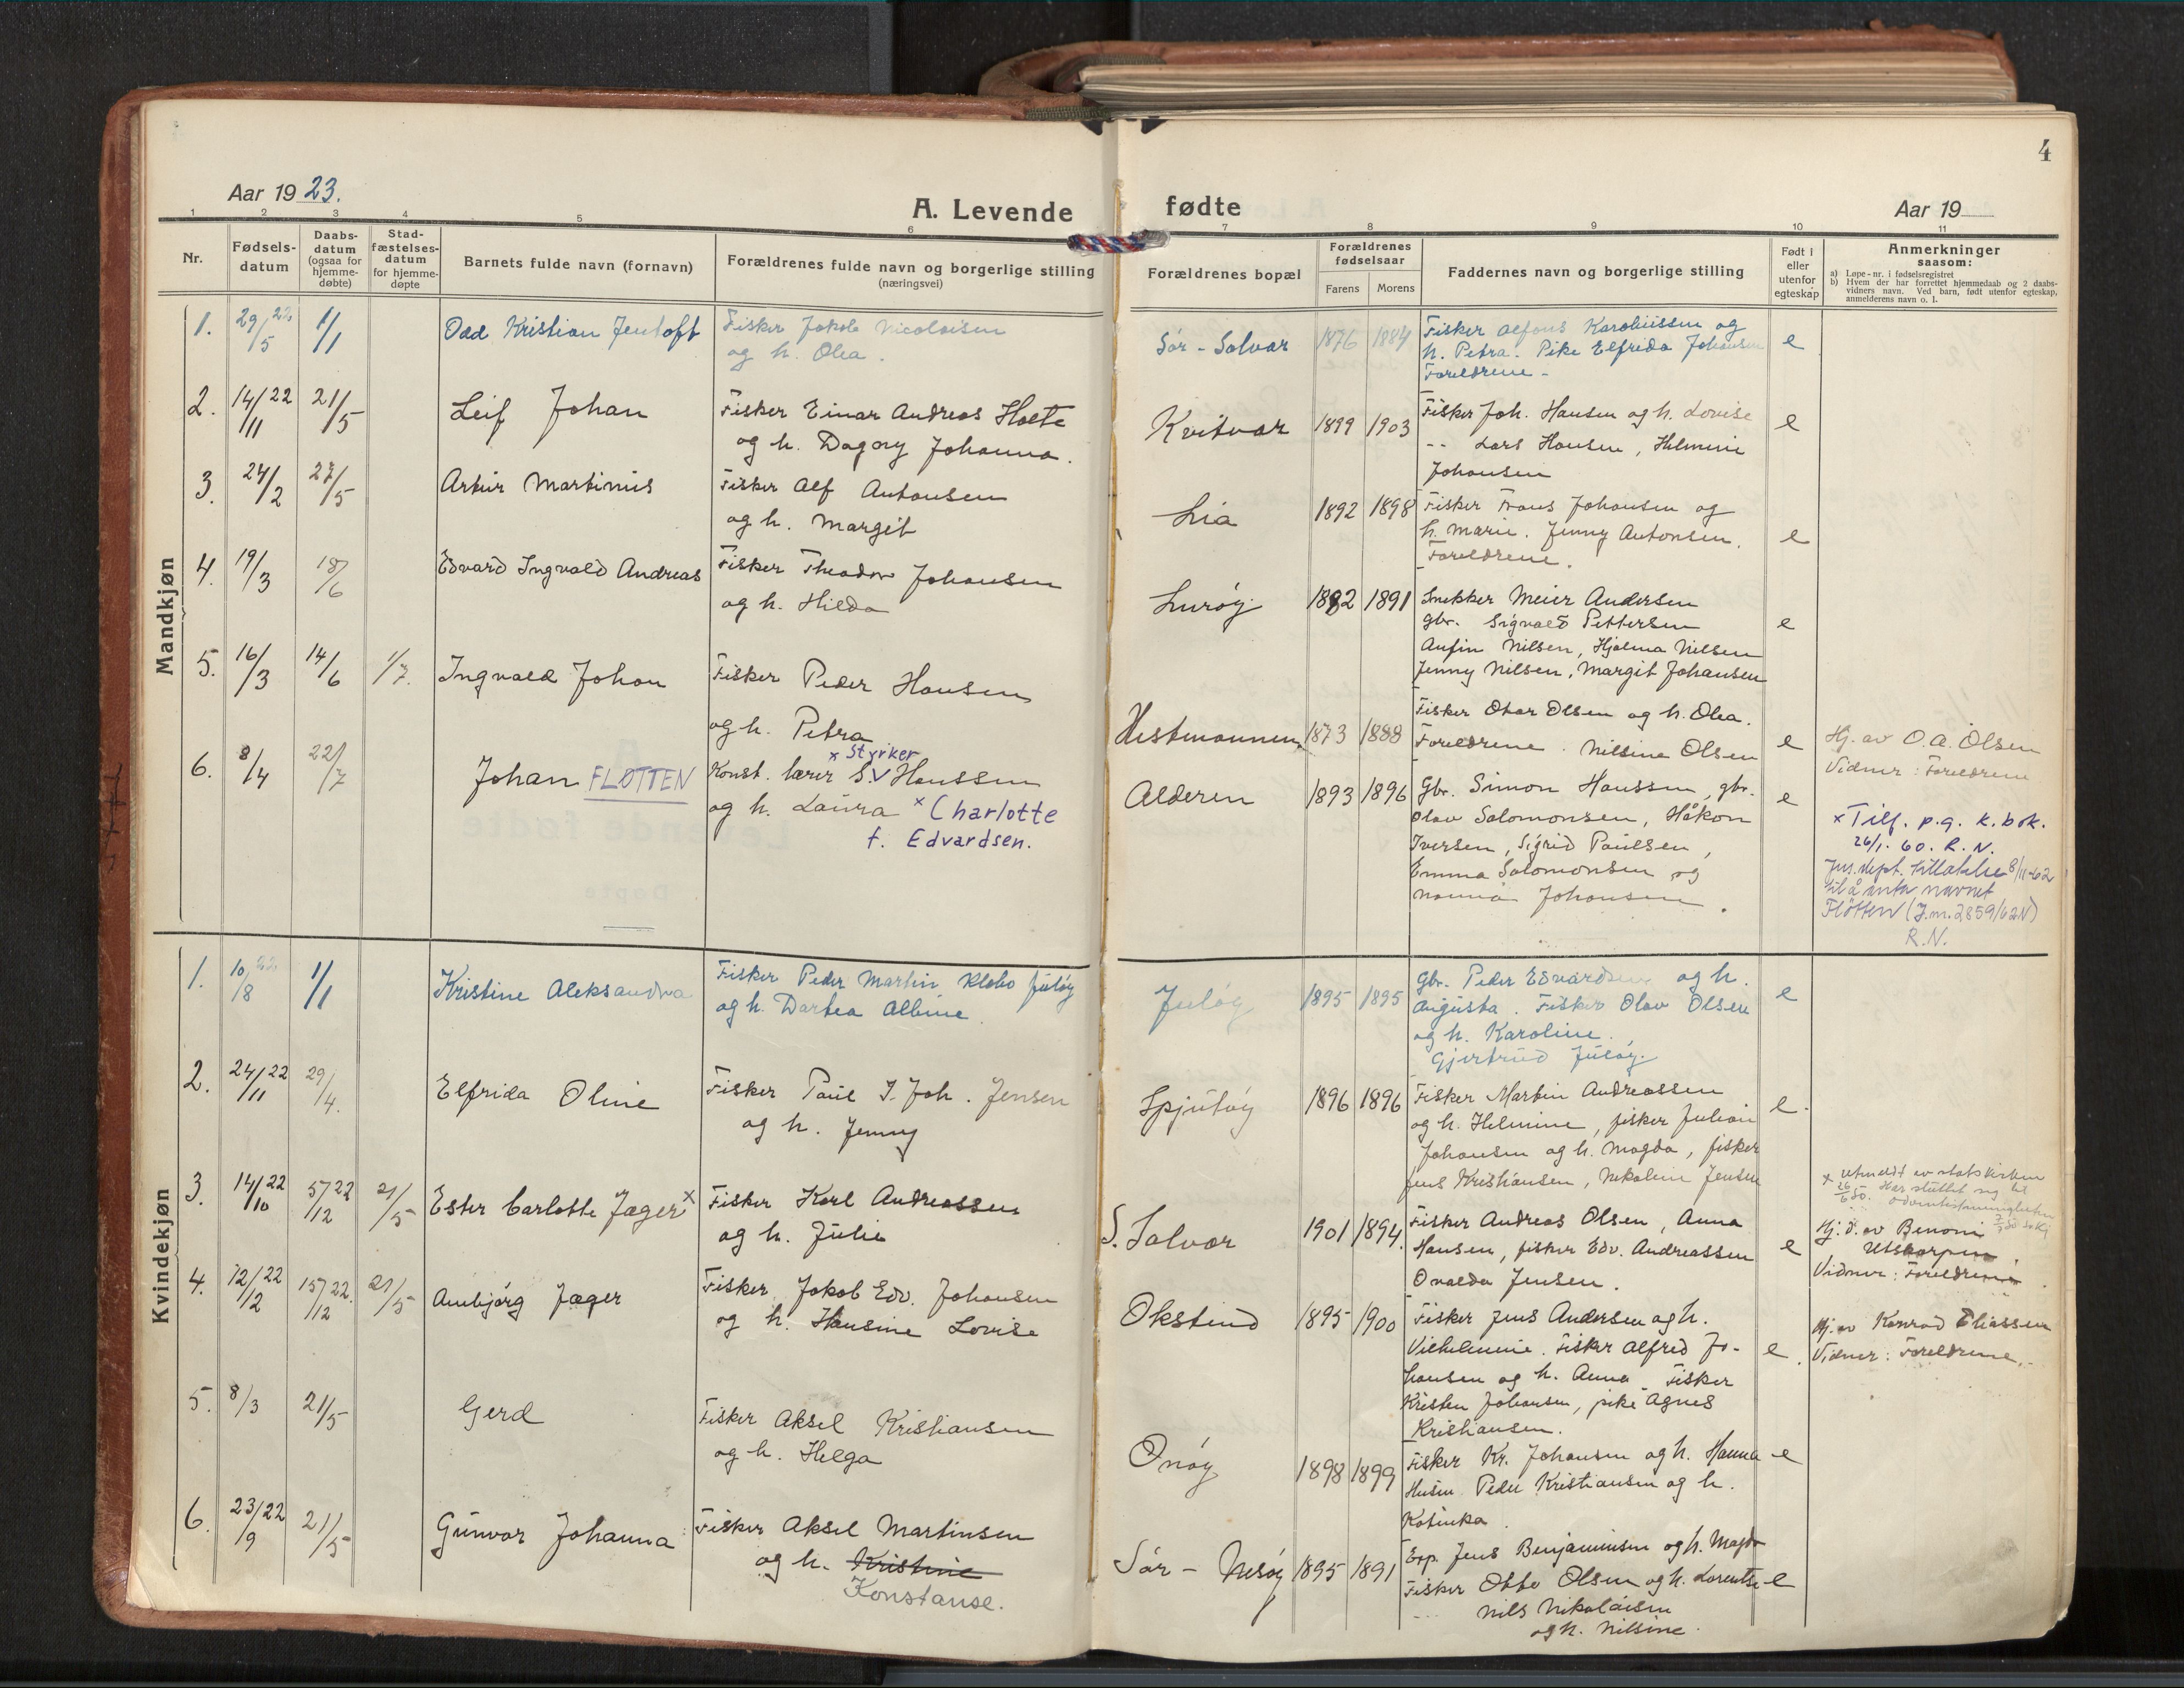 4
Aar 1923.
A. Levende fødte
Aar 19
1 2 3 4 5 6 7 8 9 10 11
Nr.
Fødsels-
datum
Daabs-
datum
(ogsaa for
hjemme-
døbte)
Stad-
fæstelses-
datum
for hjemme-
døpte
Barnets fulde navn (fornavn)
Forældrenes fulde navn og borgerlige stilling
(næringsvei)
Forældrenes bopæl
Forældrenes
fødselsaar
Farens Morens
Faddernes navn og borgerlige stilling
Født i
eller
utenfor
egteskap
Anmerkninger
saasom:
a) Løpe-nr. i fødselsregistret
b) Hvem der har forrettet hjemmedaab og 2 daabs-
vidners navn. Ved barn, født utenfor egteskap,
anmelderens navn o. l.
Mandkjøn
1. 29/5 22 1/1 Odd Kristian Jentoft
Fisker Jakob Nicolaisen
og h. Olea.
Sør-Solvær 1876 1884
Fisker Alfons Karoliussen og
h. Petra. Pike Elfrida Johansen
Foreldrene -
e
2. 14/11 22 21/5 Leif Johan
Fisker Einar Andreas Holte
og h. Dagny Johanna.
Kvitvær 1899 1903
Fisker Joh. Hansen og h. Lovise
-- Lars Hansen, Helmine
Johansen
e
3. 24/2 27/5 Artur Martinus
Fisker Alf Antonsen
og h. Margit
Lia 1892 1898
Fisker Frans Johansen og
h. Marie. Jenny Antonsen.
Foreldrene.
e
4. 19/3 18/6 Edvard Ingvald Andreas
Fisker Theodor Johansen
og h. Hilda
Lurøy 1882 1891
Snekker Meier Andersen
gbr. Sigvald Pettersen
Anfin Nilsen, Hjalma Nilsen
Jenny Nilsen, Margit Johansen
e
5. 16/3 14/6 1/7. Ingvald Johan
Fisker Peder Hansen
og h. Petra
Hestmannen 1873 1888
Fisker Otar Olsen og h. Olea.
Foreldrene. Nilsine Olsen
e
Hj. av O. A. Olsen
Vidner: Foreldrene
6. 8/4 22/7 Johan FLØTTEN
x Styrker
Konst. lærer S.V Hanssen
og h. Laura x Charlotte
f. Edvardsen.
Alderen 1893 1896
Gbr. Simon Hanssen, gbr.
Olav Salomonsen, Håkon
Iversen, Sigrid Paulsen,
Emma Salomonsen og
Nanna Johansen.
e
x Tilf. p.g. k.bok.
26/1-60. R.N.
Jus. dept. tillatelse 8/11-62
til å anta navnet
Fløtten (J.nr. 2859/62N)
R.N.
Kvindekjøn
1. 10/8 22 1/1 Kristine Aleksandra
Fisker Peder Martin Klebo Juløy
og h. Dartea Albine.
Juløy 1895 1895
Gbr. Peder Edvardsen og h.
Augusta. Fisker Olav Olsen
og h. Karoline.
Gjertrud Juløy.
e
2. 24/11 22 29/4. Elfrida Oline
Fisker Paul I. Joh. Jensen
og h. Jenny
Spjutøy 1896 1896
Fisker Martin Andreassen
og h. Helmine, fisker Julian
Johansen og h. Magda, fisker
Jens Kristiansen, Nikoline Jensen
e.
3. 14/10 22 5/12 22 21/5 Ester Carlotte Jæger x
Fisker Karl Andreassen
og h. Julie
S. Solvær 1901 1894.
Fisker Andreas Olsen, Anna
Hansen, fisker Edv. Andreassen
Ovalda Jensen.
e
x Utmeldt av statskirken
26/6 50. Har sluttet sig til
Adventistmenigheten
Hj. d. av Benoni
Utskarpen.
Vidner: Foreldrene.
4. 12/2 22 15/12 22. 21/5 Annbjørg Jæger
Fisker Jakob Edv. Johansen
og h. Hansine Lovise
Okstind 1895 1900
Fisker Jens Andersen og h.
Vilhelmine. Fisker Alfred Jo-
hansen og h. Anna Fisker
Kristen Johansen, pike Agnes
Kristiansen.
e
Hj. av Konrad Eliassen
Vidner: Foreldrene.
5. 8/3 21/5 Gerd
Fisker Aksel Kristiansen
og h. Helga
Onøy 1898 1899
Fisker Kr. Johansen og h. Hanna
Husm. Peder Kristiansen og h.
Katinka.
e
6. 23/9 22 21/5 Gunvor Johanna
Fisker Aksel Martinsen
og h. Kristine
Konstanse.
Sør-Nesøy 1895 1891
Exp. Jens Benjaminsen og h. Magda
Fisker Otto Olsen og h. Lorentse
Nils Nikolaisen
og h. Nilsine.
e